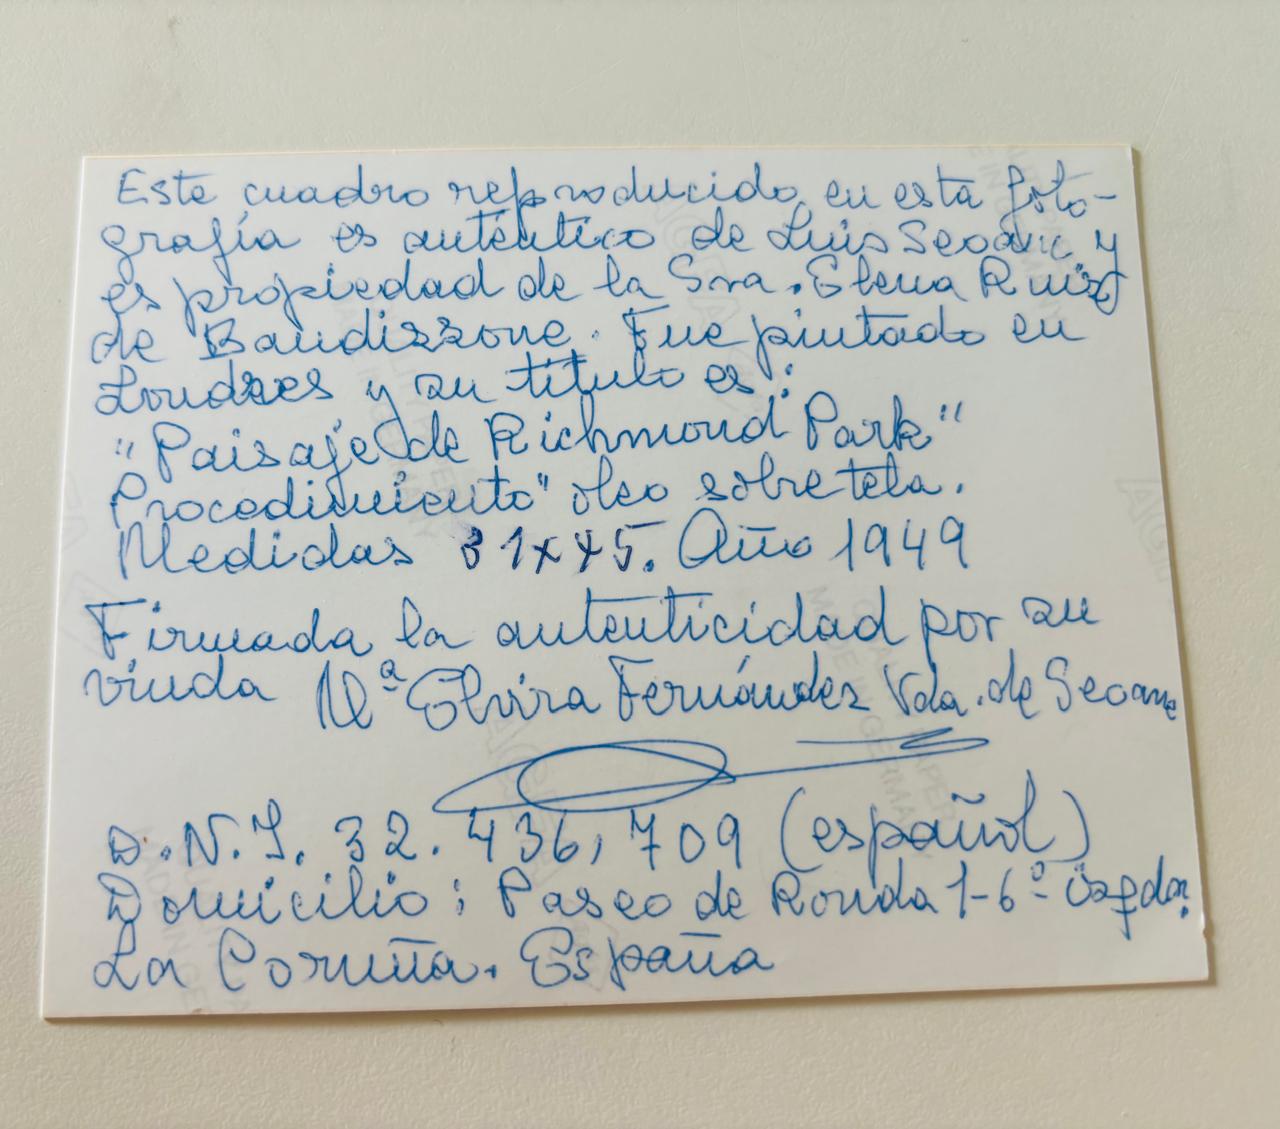 Este cuadro reproducido en esta foto-
grafía es auténtico de Luis Seoane y
es propiedad de la Sra. Elena Ruiz
de Baudizzone. Fue pintado en
Londres y su título es:
"Paisaje de Richmond Park"
Procedimiento" óleo sobre tela.
Medidas 31x45. Año 1949
Firmada la autenticidad por su
viuda Mª Elvira Fernández Vda. de Seoane
D.N.I. 32.436,709 (español)
Domicilio: Paseo de Ronda 1-6º izqda.
La Coruña. España